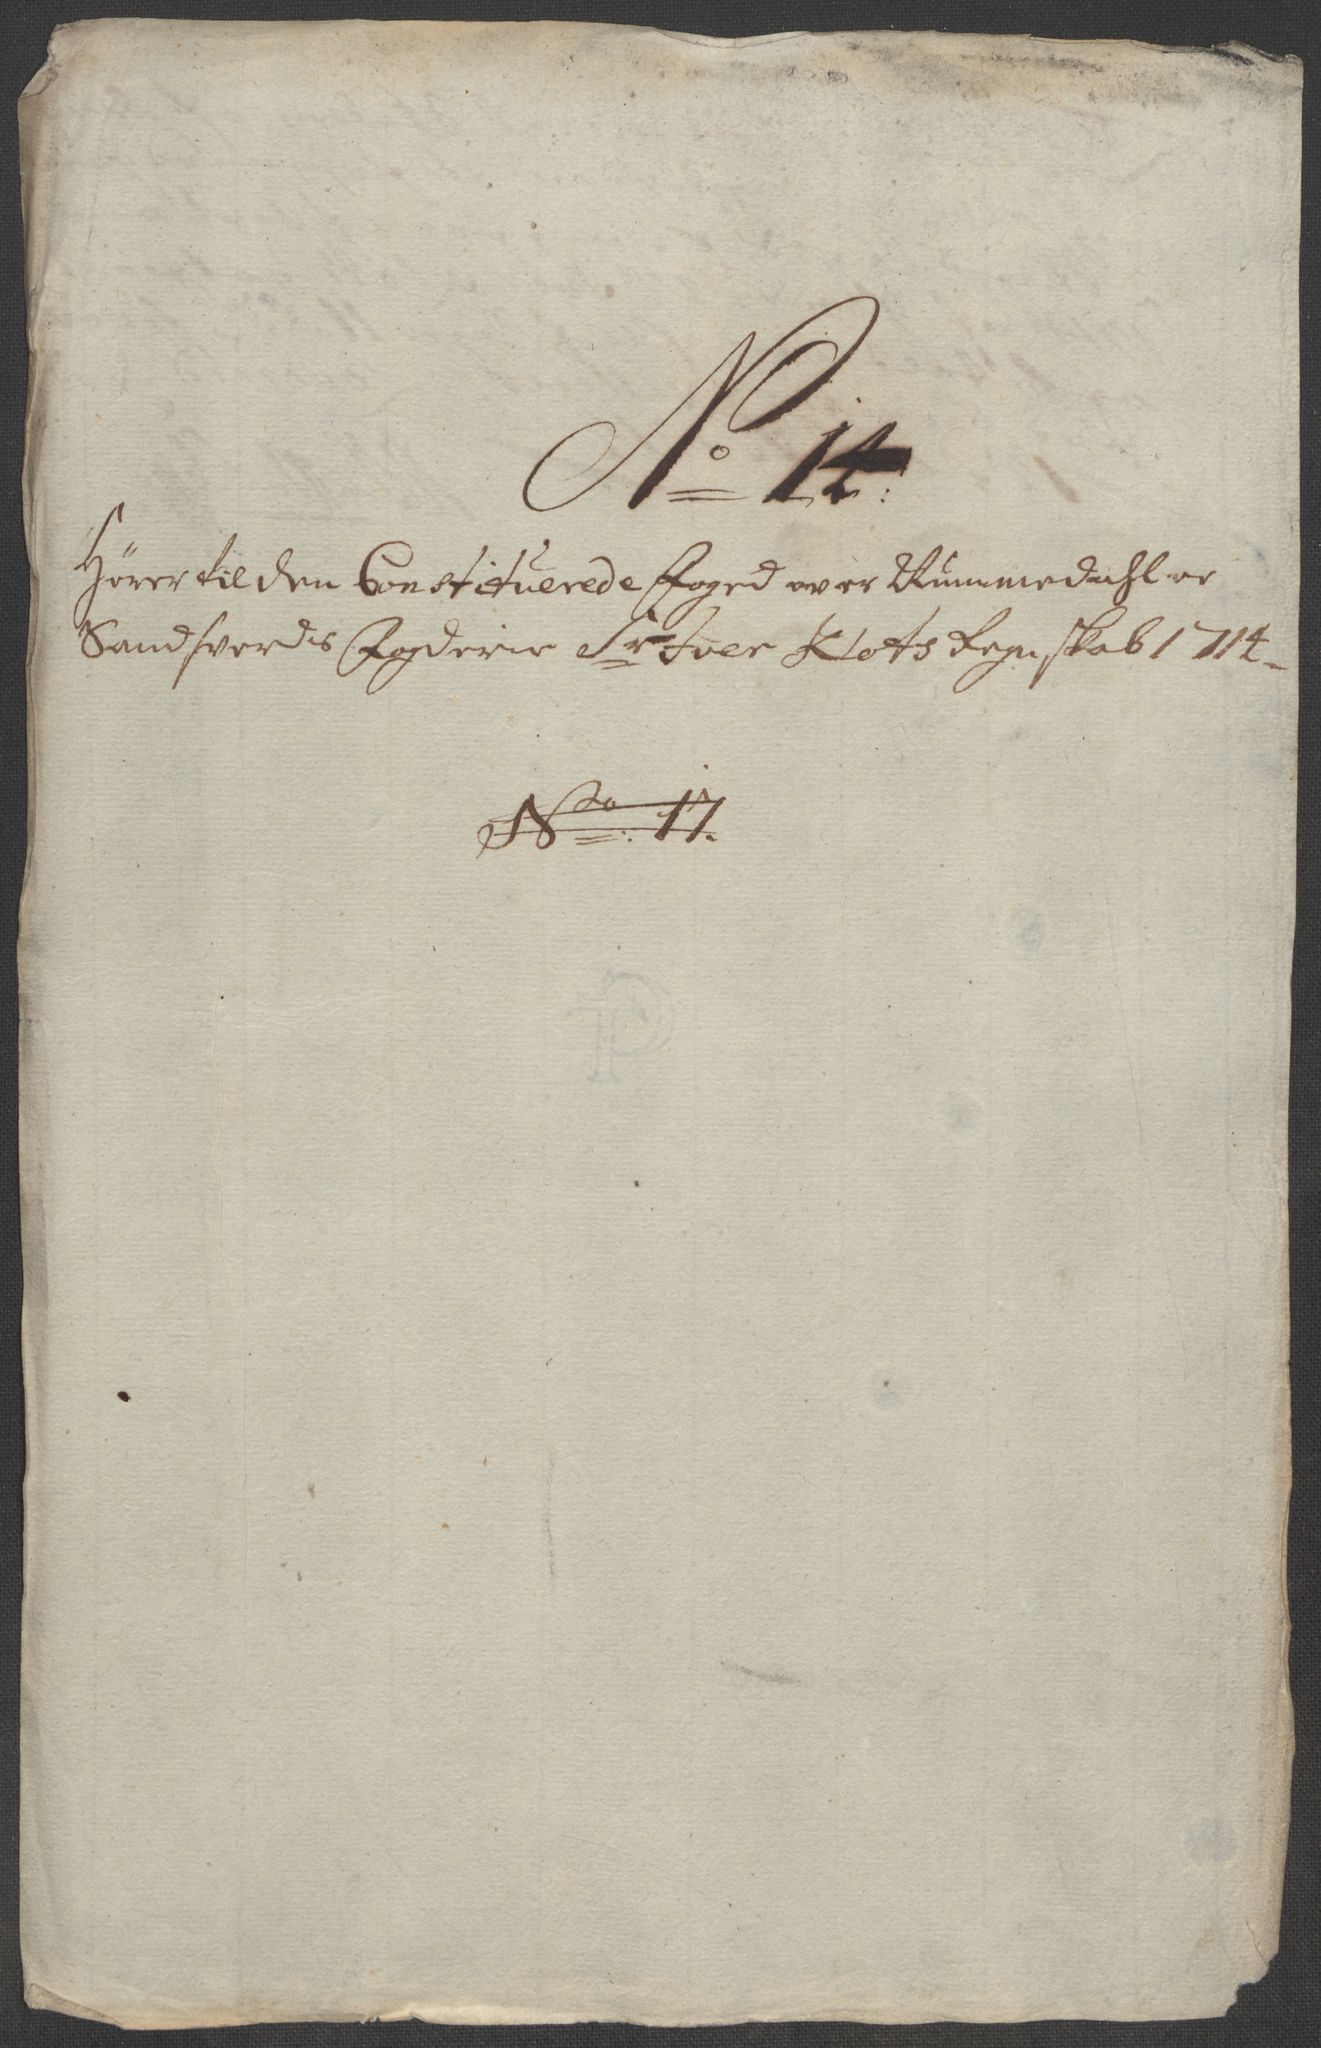 No 14:
Hörer til den Constituerede Foged over Nummedahl oc
Sandsverds Fogderie Sr Iver Klots Regnskab 1714
Nto: 17.